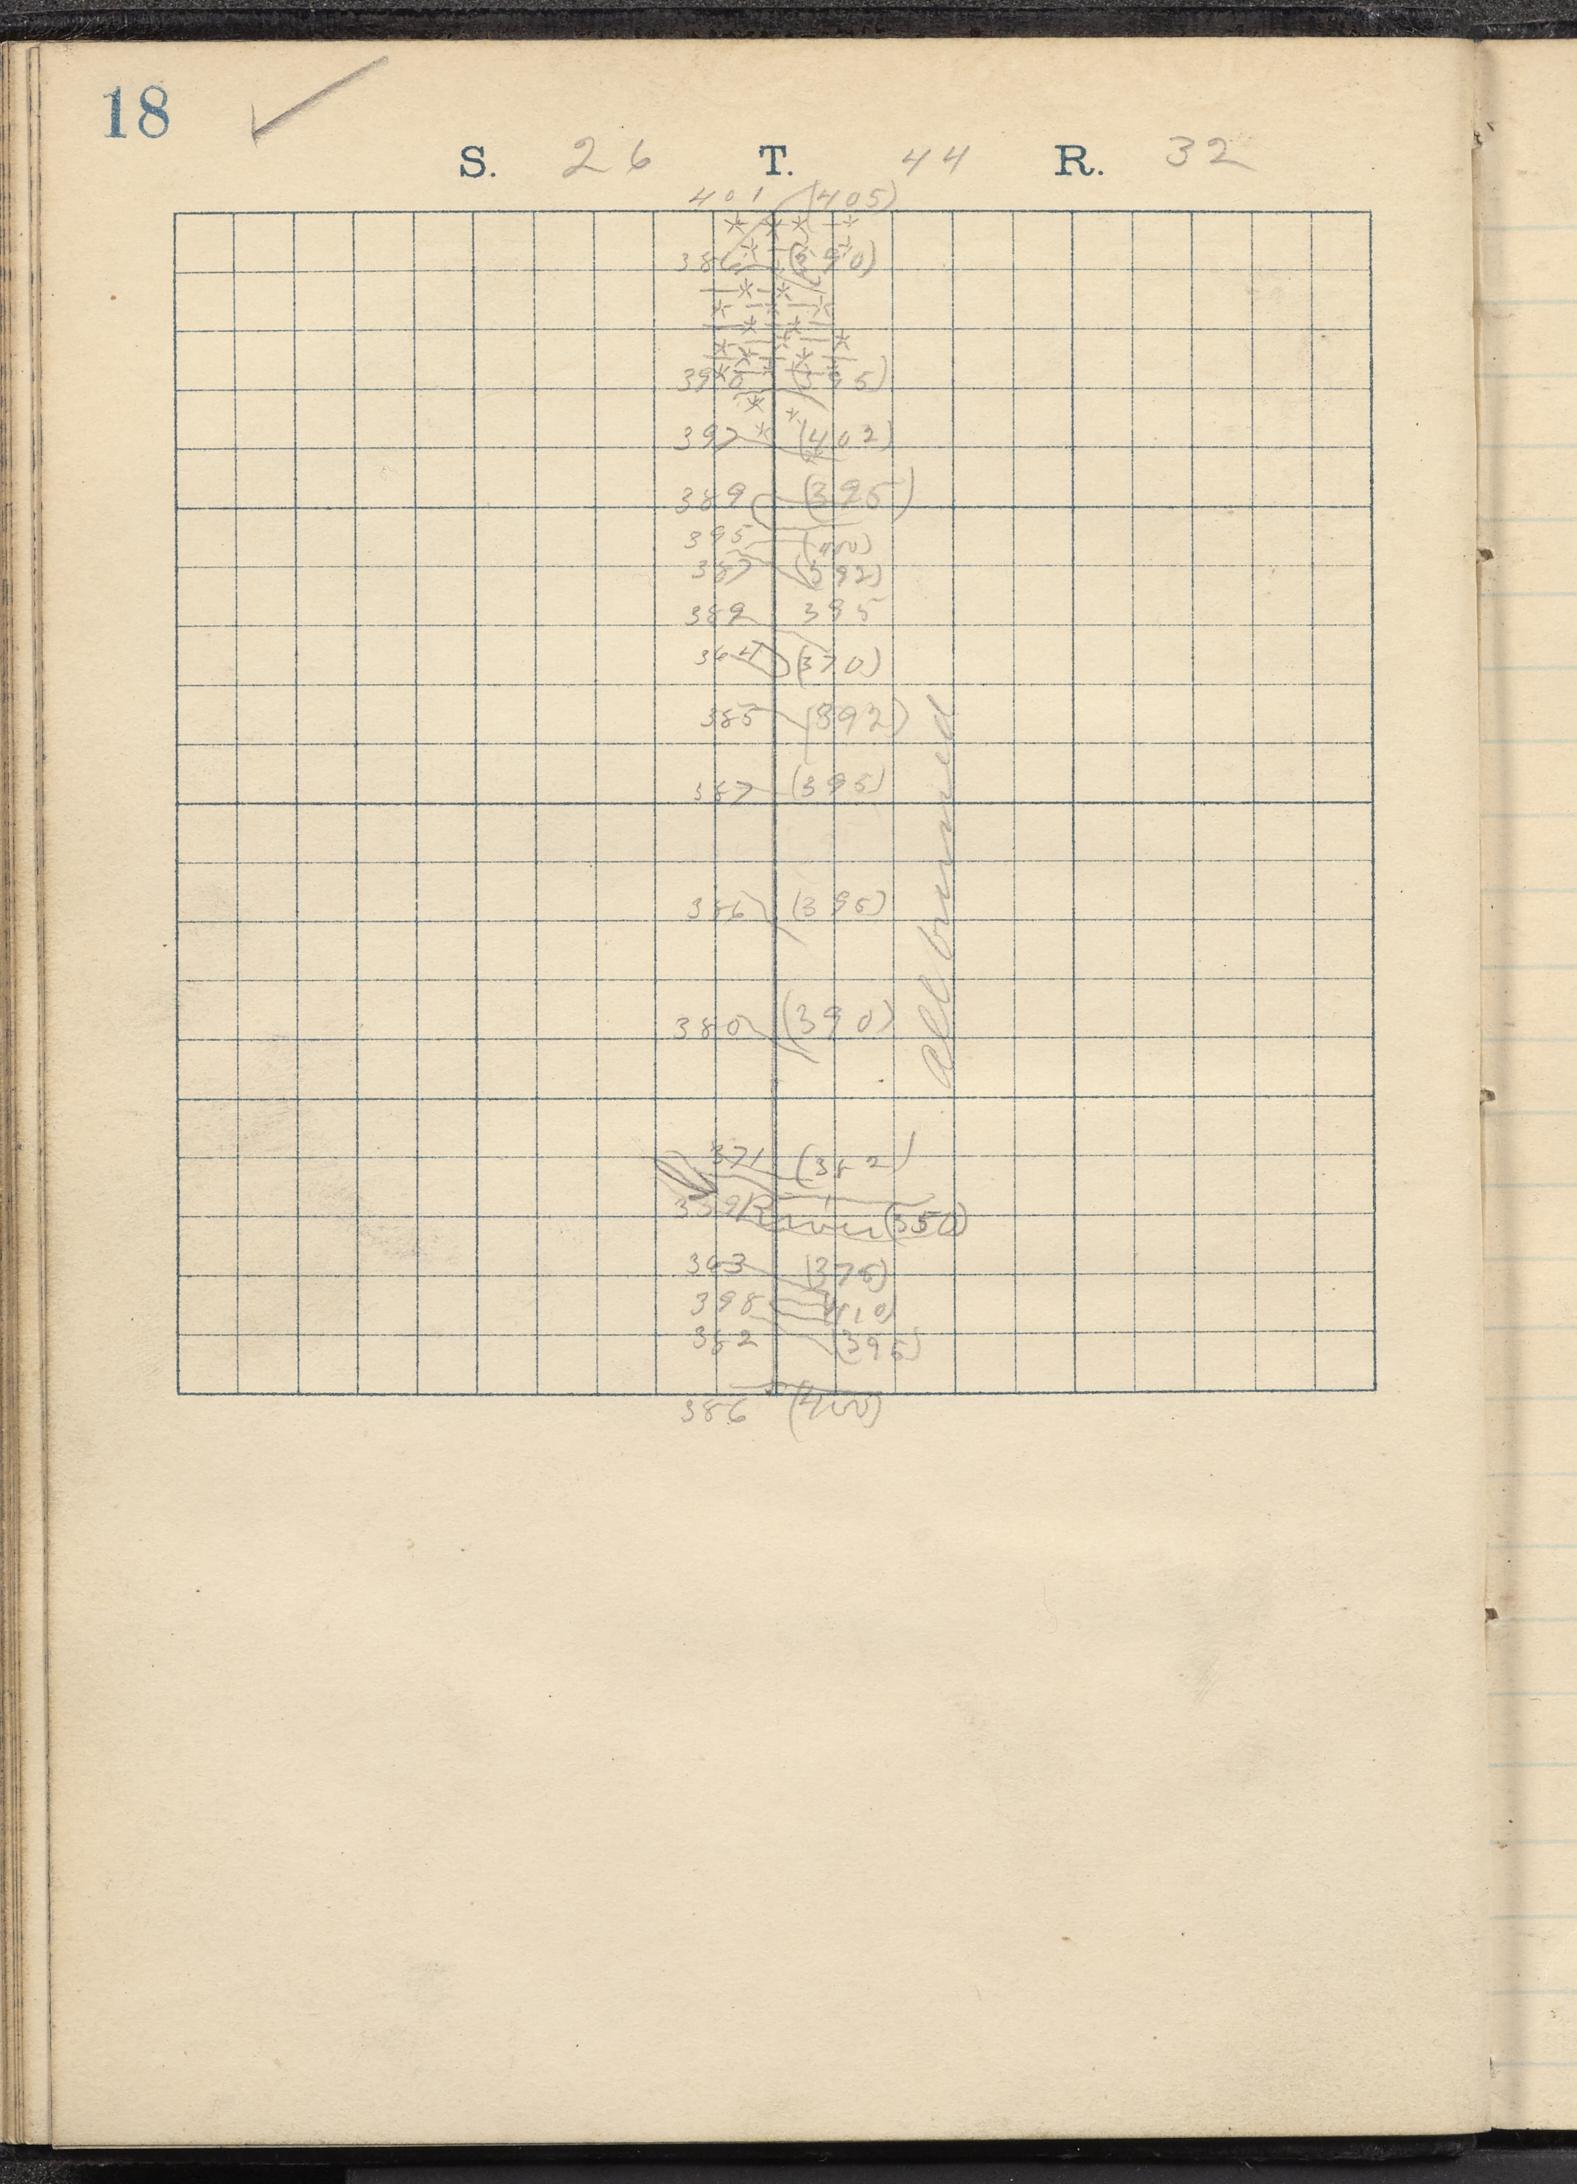 18
S. 26 T. 44 R. 32
401 (405)
386 (390)
390 (395)
397 (402)
389 (395)
395 (400)
387 (392)
389 395
364 (370)
385 (392)
387 (395)
386 (395)
380 (390)
all burned
371 (382)
339 River (350)
363 (375)
398 (410)
382 (395)
386 (400)